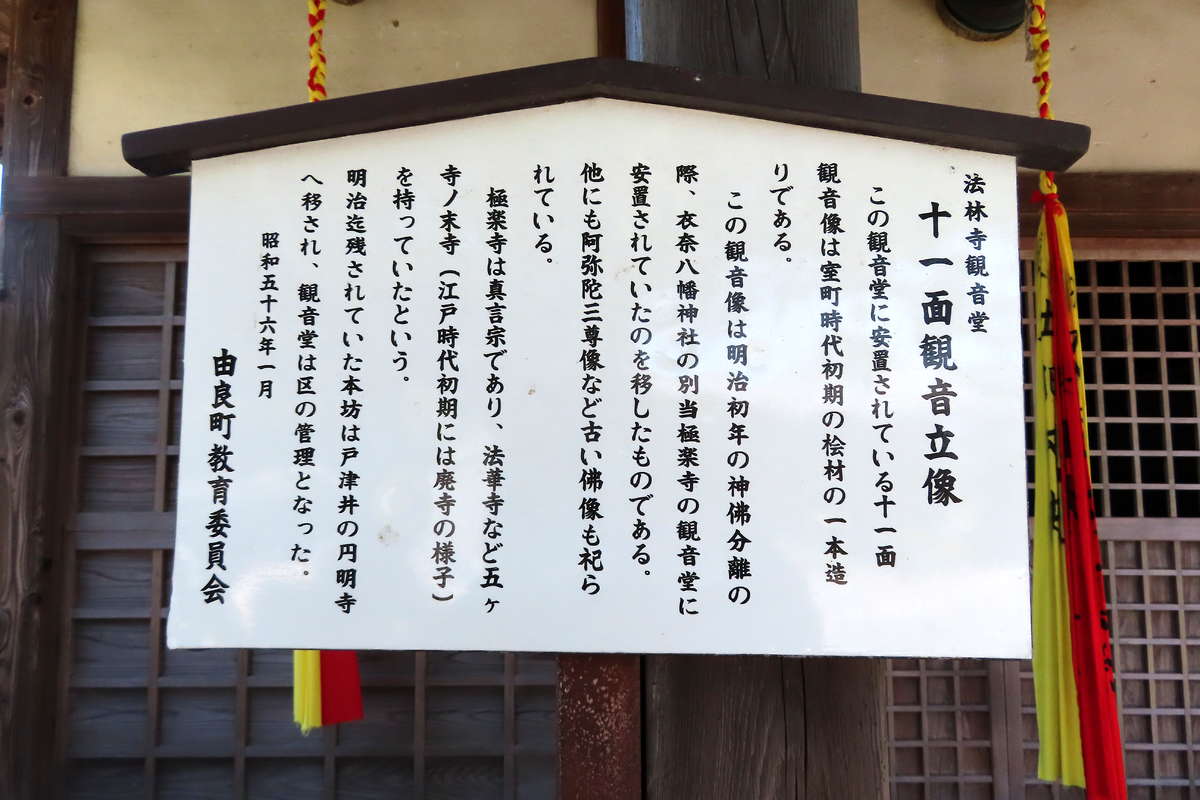 法林寺観音堂
十一面観音立像
この観音堂に安置されている十一面
観音像は室町時代初期の桧材の一本造
りである。
この観音像は明治初年の神佛分離の
際、衣奈八幡神社の別当極楽寺の観音堂に
安置されていたのを移したものである。
他にも阿弥陀三尊像など古い佛像も祀ら
れている。
極楽寺は真言宗であり、法華寺など五ヶ
寺ノ末寺（江戸時代初期には廃寺の様子）
を持っていたという。
明治迄残されていた本坊は戸津井の円明寺
へ移され、観音堂は区の管理となった。
昭和五十六年一月
由良町教育委員会